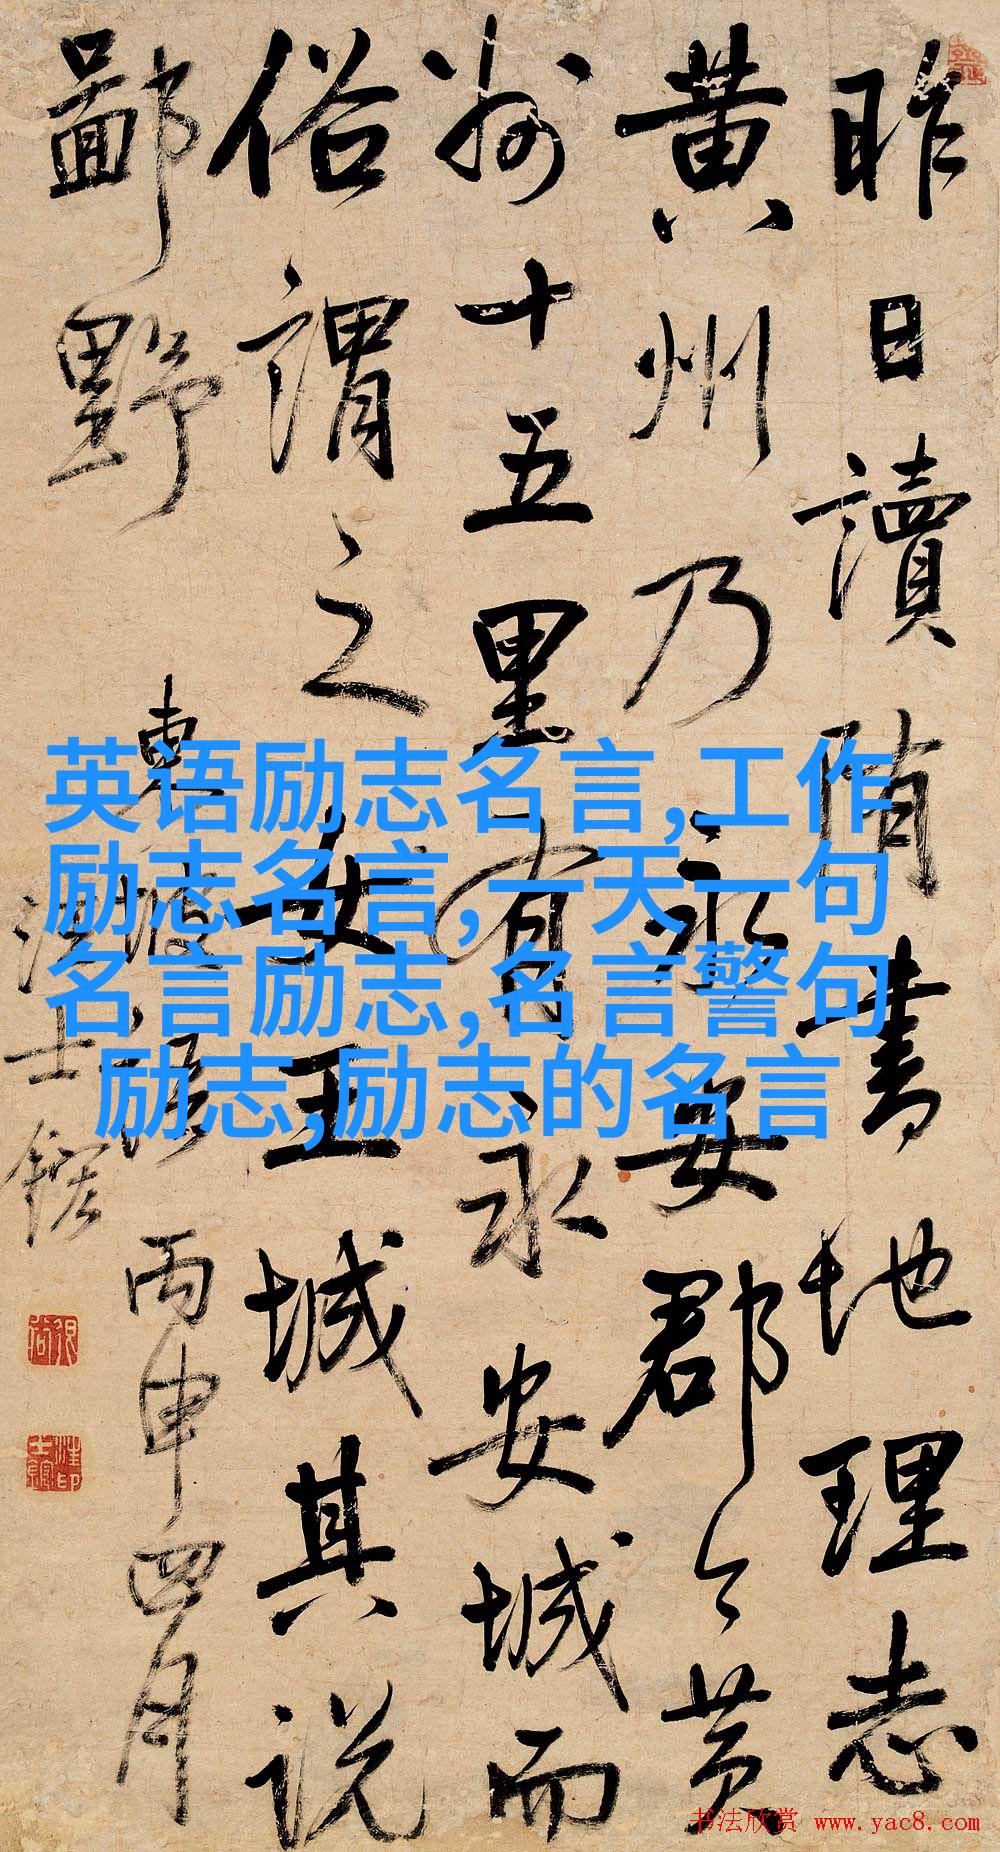 昨日讀隋書地理志
黄州乃永安郡今黄
州十五里有永安城而
俗謂之女王城其说
鄙野
東坡語 丙申四月
汪士鋐
英语励志名言,工作
励志名言,一天一句
名言励志,名言警句
励志,励志的名言
书法欣赏 www.yac8.com